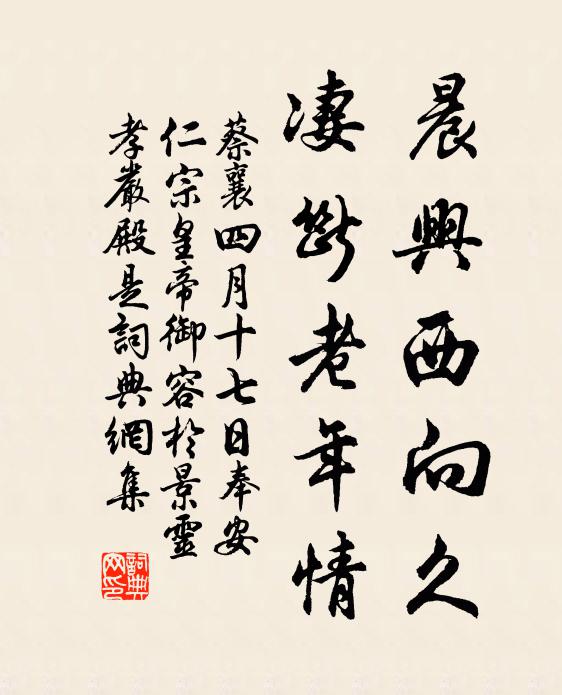 晨興西向久
凄斷老年情
蔡襄四月十七日奉安
仁宗皇帝御容於景靈
孝嚴殿是詞典網集
詞典网印